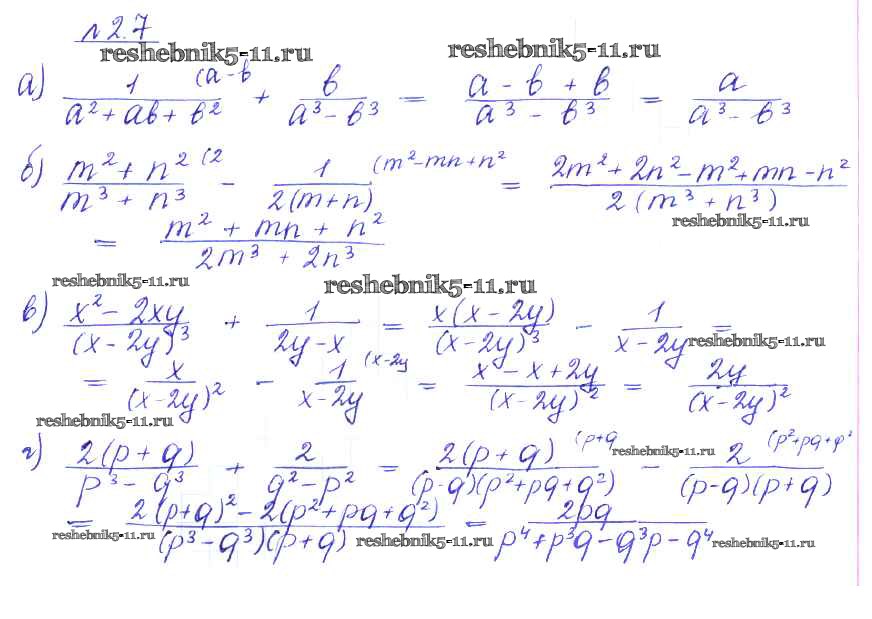 №2.7
reshebnik5-11.ru reshebnik5-11.ru
а) 1/(a² + ab + b²) (a-b + b/(a³ - b³) = (a - b + b)/(a³ - b³) = a/(a³ - b³)
б) (m² + n²)/(m³ + n³) (2 - 1/(2(m+n)) (m²-mn+n² = (2m² + 2n² - m² + mn - n²)/(2(m³ + n³))
reshebnik5-11.ru
= (m² + mn + n²)/(2m³ + 2n³)
reshebnik5-11.ru reshebnik5-11.ru
в) (x² - 2xy)/(x - 2y)³ + 1/(2y - x) = x(x - 2y)/(x - 2y)³ - 1/(x - 2y) =
reshebnik5-11.ru
= x/(x-2y)² - 1/(x-2y) (x-2y = (x - x + 2y)/(x-2y)² = 2y/(x-2y)²
reshebnik5-11.ru
г) 2(p + q)/(p³ - q³) + 2/(q² - p²) = 2(p + q)/((p-q)(p²+pq+q²)) (p+q - 2/((p-q)(p+q)) (p²+pq+q²
reshebnik5-11.ru
= (2(p+q)² - 2(p² + pq + q²))/((p³ - q³)(p+q)) = 2pq/(p⁴ + p³q - q³p - q⁴)
reshebnik5-11.ru reshebnik5-11.ru reshebnik5-11.ru